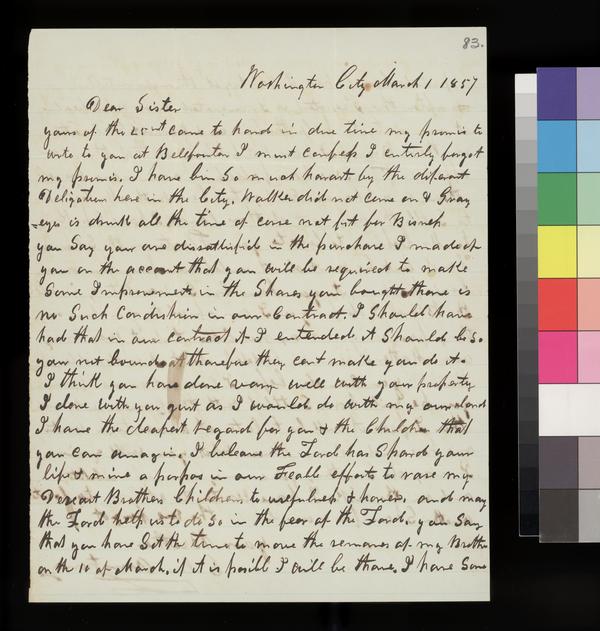 83.
Washington City March 1 1857
Dear Sister
yours of the 25 nt came to hand in due time my promis to
write to you at Bellfonten I must confess I entirly forgot
my promis. I have bin so much harast by the diferant
Deligations here in the City. Walker did not come on & Gray
=eyes is drunk all the time of corse not fit for Bisness
you Say your are dissattisfid in the purchase I made of
you on the account that you will be required to make
Some Improvements in the Shares you bought there is
no Such Condishion in our Contract. I Should have
had that in our contract if I entended it Should be So
your not bound at therefore they cant make you do it.
I think you have done vary well with your property
I done with you gust as I would do with my own and
I have the deapest regard for you & the Children that
you can amagin. I beleave the Lord has Spard your
life & mine a porpos in our Feable efforts to rase my
Deceast Brothers Children to usefulness & honer, and may
the Lord help us to do So in the fear of the Lord. you Say
that you have Set the time to move the remanes of my Brother
on the 10 of March. if it is posibl I will be thare. I have Some